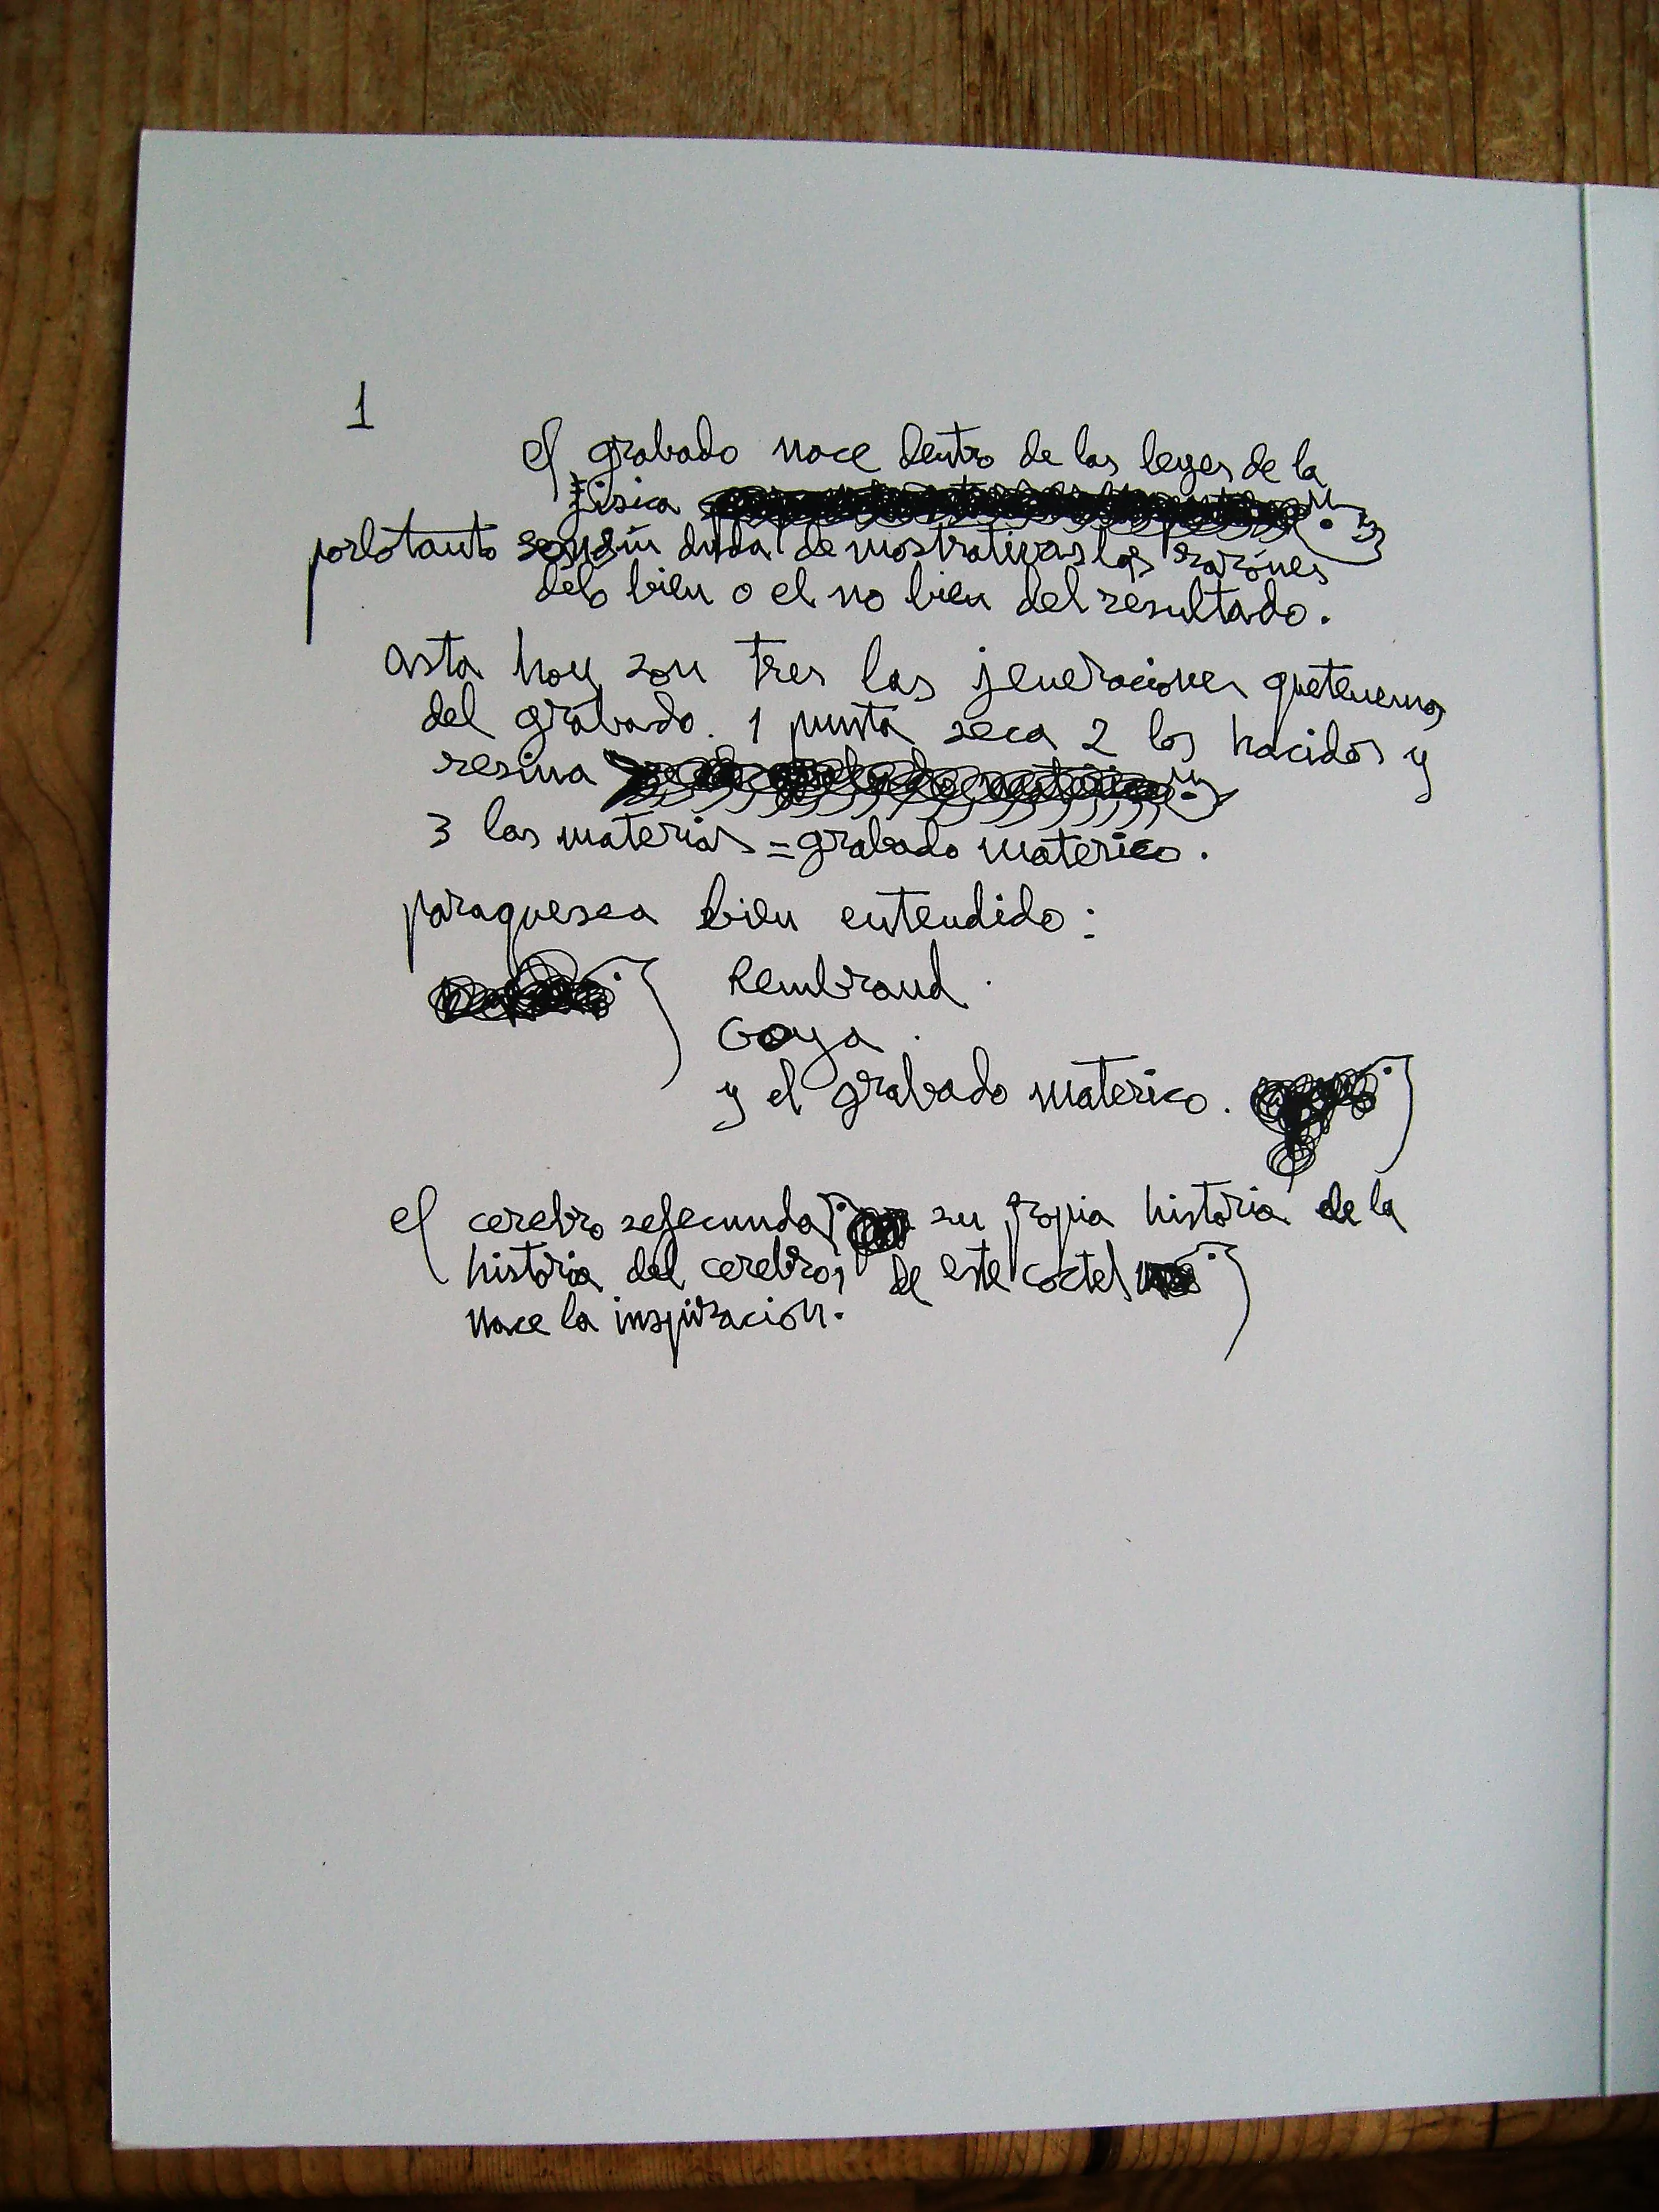 1
el grabado nace dentro de las leyes de la
fisica
porlotanto son sin duda demostrativas las razónes
delo bien o el no bien del resultado.
asta hoy son tres las jeneraciones quetenemos
del grabado. 1 punta seca 2 los hacidos y
resina
3 las materias = grabado materico.
paraquesea bien entendido:
Rembrand.
Goya.
y el grabado materico.
el cerebro sefecunda su propia historia de la
historia del cerebro; de este coctel
nace la inspiracion.